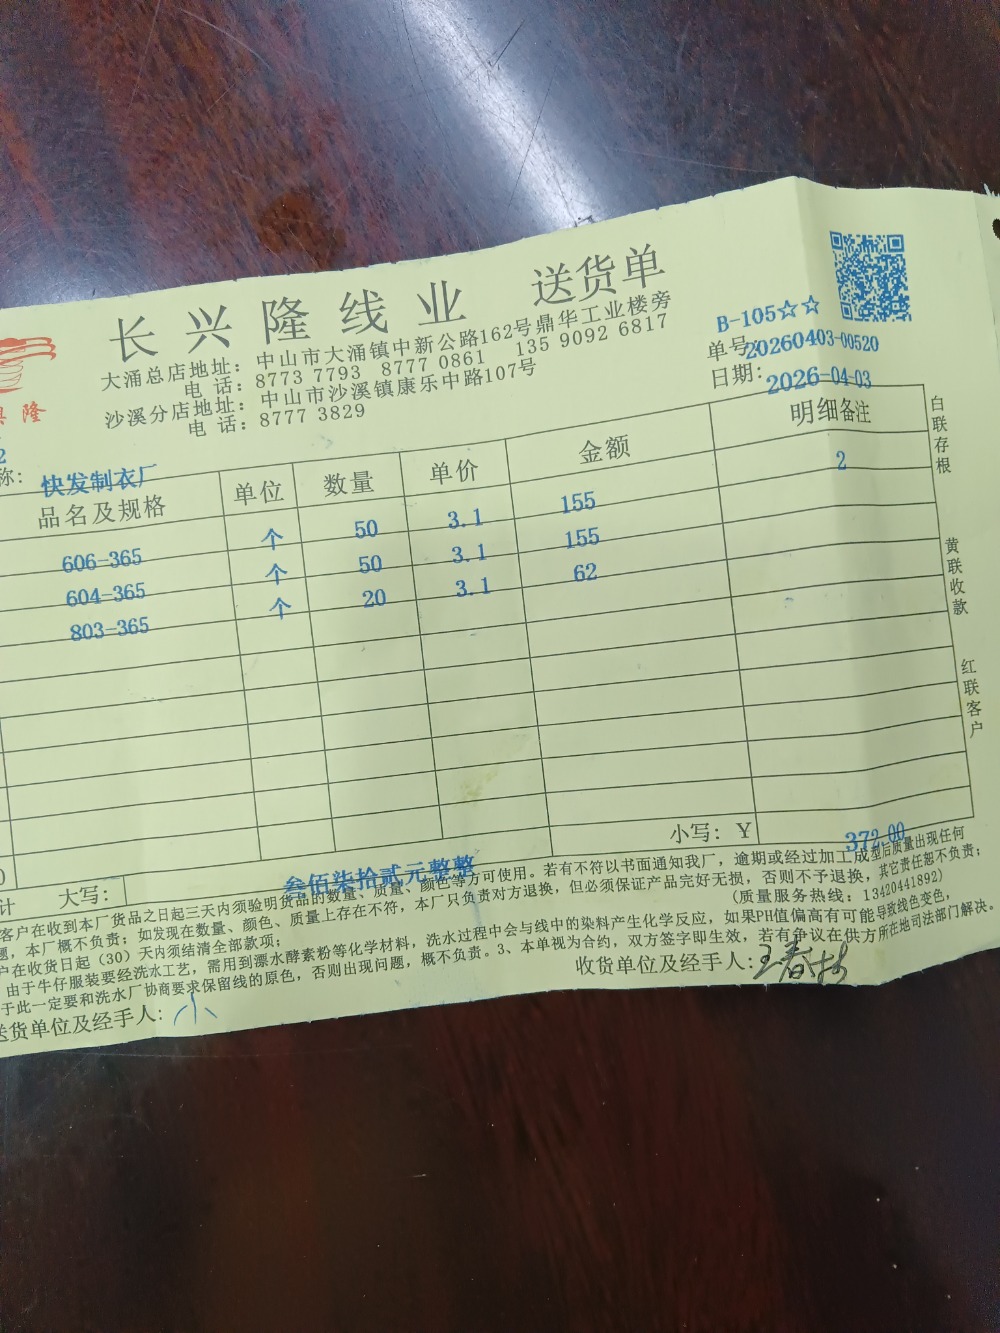 长兴隆线业 送货单
大涌总店地址：中山市大涌镇中新公路162号鼎华工业楼旁
电 话：8773 7793 8777 0861 135 9092 6817
沙溪分店地址：中山市沙溪镇康乐中路107号
电 话：8777 3829
B-105☆☆
单号:20260403-00520
日期:2026-04-03
隆
2
称: 快发制衣厂
品名及规格 单位 数量 单价 金额 明细备注
2
606-365 个 50 3.1 155
604-365 个 50 3.1 155
803-365 个 20 3.1 62
白联存根
黄联收款
红联客户
小写：Y 372.00
计 大写：叁佰柒拾贰元整整
客户在收到本厂货品之日起三天内须验明货品的数量、质量、颜色等方可使用。若有不符以书面通知我厂，逾期或经过加工成型后质量出现任何
题，本厂概不负责；如发现在数量、颜色、质量上存在不符，本厂只负责对方退换，但必须保证产品完好无损，否则不予退换，其它责任恕不负责；
户在收货日起（30）天内须结清全部款项； (质量服务热线：13420441892)
由于牛仔服装要经洗水工艺，需用到漂水酵素粉等化学材料，洗水过程中会与线中的染料产生化学反应，如果PH值偏高有可能导致线色变色，
于此一定要和洗水厂协商要求保留线的原色，否则出现问题，概不负责。3、本单视为合约，双方签字即生效，若有争议在供方所在地司法部门解决。
送货单位及经手人: 小
收货单位及经手人: